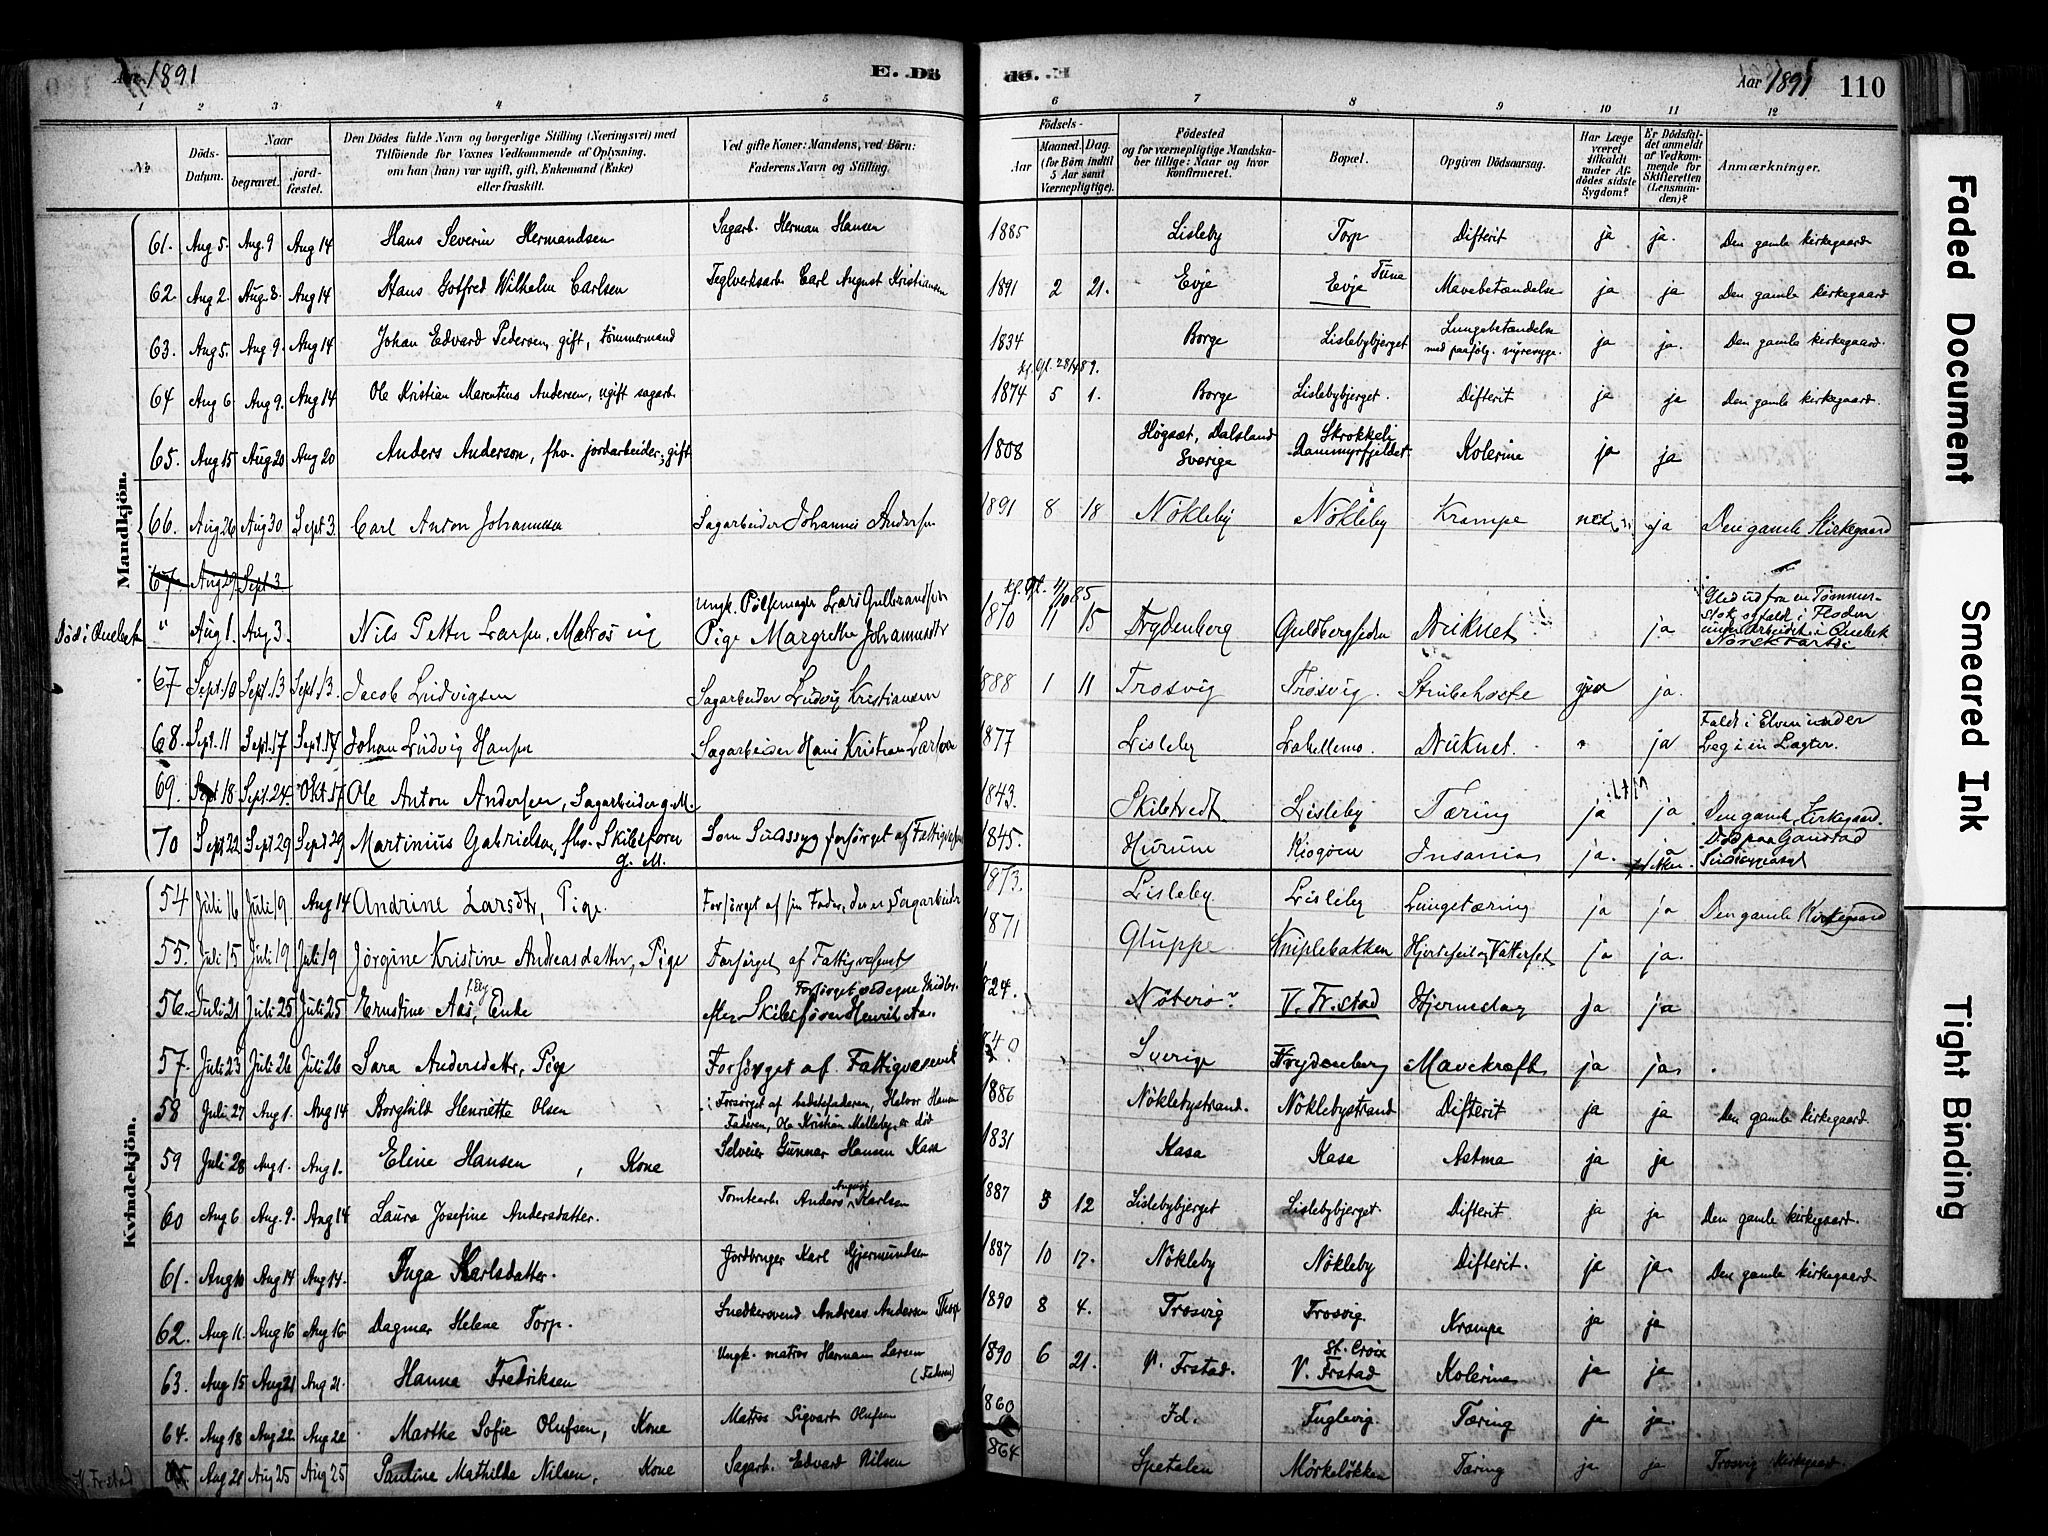 Aar 1891
E. Dö
de. E.
Aar 1891
110
1 2 3 4 5 6 7 8 9 10 11 12
No
Döds-Datum.
Naar
begravet.
jordfæstet.
Den Dödes fulde Navn og borgerlige Stilling (Næringsvei) med
Tilföiende for Voxnes Vedkommende af Oplysning,
om han (hun) var ugift, gift, Enkemand (Enke)
eller fraskilt.
Ved gifte Koner: Mandens, ved Börn:
Faderens Navn og Stilling.
Födsels-
Aar
Maaned. Dag.
(for Börn indtil
5 Aar samt
Værnepligtige).
Födested
og for værnepligtige Mandskaber tillige: Naar og hvor
Konfirmeret.
Bopæl.
Opgiven Dödsaarsag.
Har Læge været tilkaldt under Afdödes sidste Sygdom?
Er Dödsfaldet anmeldt af Vedkommende for Skifteretten (Lensmanden)?
Anmærkninger.
Mandkjön.
61. Aug 5. Aug. 9 Aug 14 Hans Severin Hermandsen Sagarb. Herman Hansen 1885 Lisleby Torp Difterit ja ja. Den gamle kirkegaard
62. Aug 2. Aug 8. Aug 14 Hans Gotfred Wilhelm Carlsen Teglverksarb. Carl August Kristiansen 1891 2 21. Evje Evje Tune Mavebetændelse ja ja Den gamle kirkegaard
63. Aug 5. Aug 9. Aug 14 Johan Edvard Pedersen, gift, tömmermand 1834 Borge Lislebybjerget Lungebetændelse med paafölg. nyresyge. ja ja. Den gamle kirkegaard.
64 Aug 6. Aug 9. Aug 14 Ole Kristian Marentius Andersen, ugift sagarb. 1874 5 1. Borge Lislebybjerget. Difterit ja ja Den gamle kirkegaard.
65. Aug 15 Aug 20 Aug 20 Anders Anderson, fhv. jordarbeider, gift 1808 Högsæt, Dalsland Sverige Skrokkeli Dammyrfjeldet Kolerine ja ja
66. Aug 26 Aug 30 Sept. 3. Carl Anton Johannesen Sagarbeider Johannes Andersen 1891 8 18 Nökleby Nökleby Krampe nei ja Den gamle Kirkegaard
67. Aug 29 Sept 3
Död i Quebek " Aug 1. Aug 3. Nils Petter Larsen, Matros ug Ungk. Pölsemager Lars Gulbrandsen Pige Margrethe Johannesdtr 1870 11 15 Frydenberg Guldbergsiden Druknet ja Gled ud fra en Tömmerstok og faldt i Floden under Arbeidet i Quebek
67 Sept. 10 Sept. 13 Sept. 13. Jacob Ludvigsen Sagarbeider Ludvig Kristiansen 1888 1 11 Trosvig Trosvig. Strubehoste ja ja.
68. Sept. 11 Sept. 17 Sept. 17 Johan Ludvig Hansen Sagarbeider Hans Kristian Larsen 1877 Lisleby Labellemo. Druknet. " ja Faldt i Elven under Leg i en Lægter.
69. Sept 18 Sept. 24. Okt. 17 Ole Anton Andersen, Sagarbeider g. M. 1843. Skilstvedt Lisleby Tæring ja ja Den gamle Kirkegaard.
70 Sept 22 Sept 29 Sept 29 Martinius Gabrielsen, fhv. Skibsförer g. M. Som Sindssyg forsörget af Fattigvæsen 1845. Hurum Kjögöen Insania ja. ja Död paa Gaustad Sindssygeasyl
Kvindekjön.
54 Juli 16 Juli 19 Aug 14 Andrine Larsdtr, Pige. Forsörget af sin Fader, der er Sagarbeider 1873. Lisleby Lisleby Lungetæring ja ja Den gamle Kirkegaard
55. Juli 15 Juli 19 Juli 19 Jörgine Kristine Andreasdatter, Pige Forsörget af Fattigvæsenet 1871 Gluppe Kniplebakken Hjertefeil og Vattersot ja ja.
56. Juli 21 Juli 25 Juli 25 Ernstine Aas, Enke efter Skibsförer Henrik Aas. Forsörget ved egne Midler. 1824. Nöterö V. Fr.stad Hjerneslag ja ja
57. Juli 23 Juli 26 Juli 26 Sara Andersdattr, Pige Forsörget af Fattigvæsenet 1840 Sverige Frydenberg Mavekræft ja ja.
58 Juli 27 Aug 1. Aug 14 Borghild Henriette Olsen Forsörget af bedstefaderen, Halvor Hansen Faderen, Ole Kristian Melleby, er död 1886 Nöklebystrand. Nöklebystrand Difterit ja ja Den gamle kirkegaard.
59 Juli 28 Aug 1. Aug 1. Eline Hansen, Kone Selveier Gunnar Hansen Kasa 1831 Kasa Kasa Astma ja ja
60 Aug 6 Aug. 9. Aug 14 Laura Josefine Andersdatter. Tomtearb. Anders August Karlsen 1887 3 12 Lislebybjerget Lislebybjerget. Difterit. ja ja Den gamle kirkegaard.
61. Aug 10 Aug 14 Aug 14. Inga Karlsdatter. Jordbruger Karl Gjermundsen 1887 10 17. Nökleby Nökleby Difterit. ja ja. Den gamle kirkegaard
62. Aug 11. Aug 16 Aug 16. Dagmar Helene Torp. Snedkersvend Andreas Andersen Thorp 1890 8 4. Trosvig Trosvig. Krampe ja ja
63. Aug 15 Aug 21 Aug 21. Hanna Fredriksen Ungk. matros Herman Larsen (Faderen) 1890 6 21. V. Frstad. St. Croix V. Frstad Kolerine ja ja
64. Aug 18 Aug 22. Aug 22 Marthe Sofie Olufsen, Kone Matros Sigvart Olufsen 1860 Id. Fuglevig. Tæring ja ja.
V. Frstad 65. Aug 21 Aug 25 Aug 25 Pauline Mathilde Nilsen, Kone Sagarb. Edvard Nilsen 1864 Spetalen Mörkelökken Tæring ja ja Trosvig Kirkegaard.
Faded Document
Smeared Ink
Tight Binding